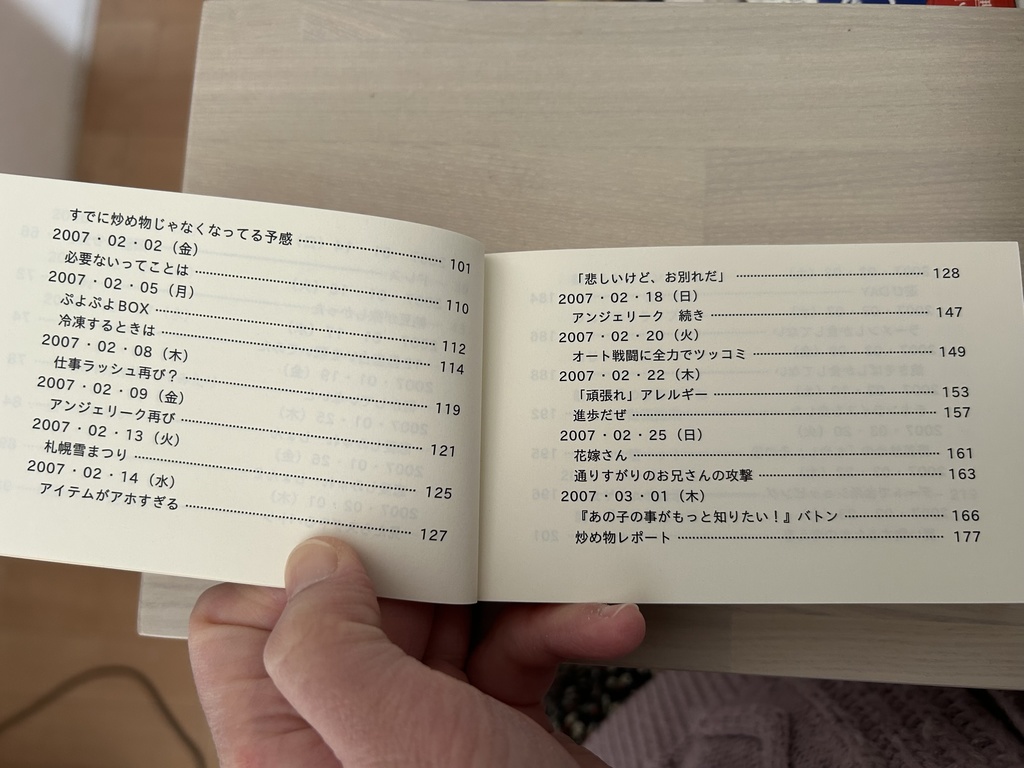 すでに炒め物じゃなくなってる予感 101
2007・02・02(金)
必要ないってことは 110
2007・02・05(月)
ぷよぷよBOX 112
冷凍するときは 114
2007・02・08(木)
仕事ラッシュ再び? 119
2007・02・09(金)
アンジェリーク再び 121
2007・02・13(火)
札幌雪まつり 125
2007・02・14(水)
アイテムがアホすぎる 127
「悲しいけど、お別れだ」 128
2007・02・18(日)
アンジェリーク 続き 147
2007・02・20(火)
オート戦闘に全力でツッコミ 149
2007・02・22(木)
「頑張れ」アレルギー 153
進歩だぜ 157
2007・02・25(日)
花嫁さん 161
通りすがりのお兄さんの攻撃 163
2007・03・01(木)
『あの子の事がもっと知りたい!』バトン 166
炒め物レポート 177